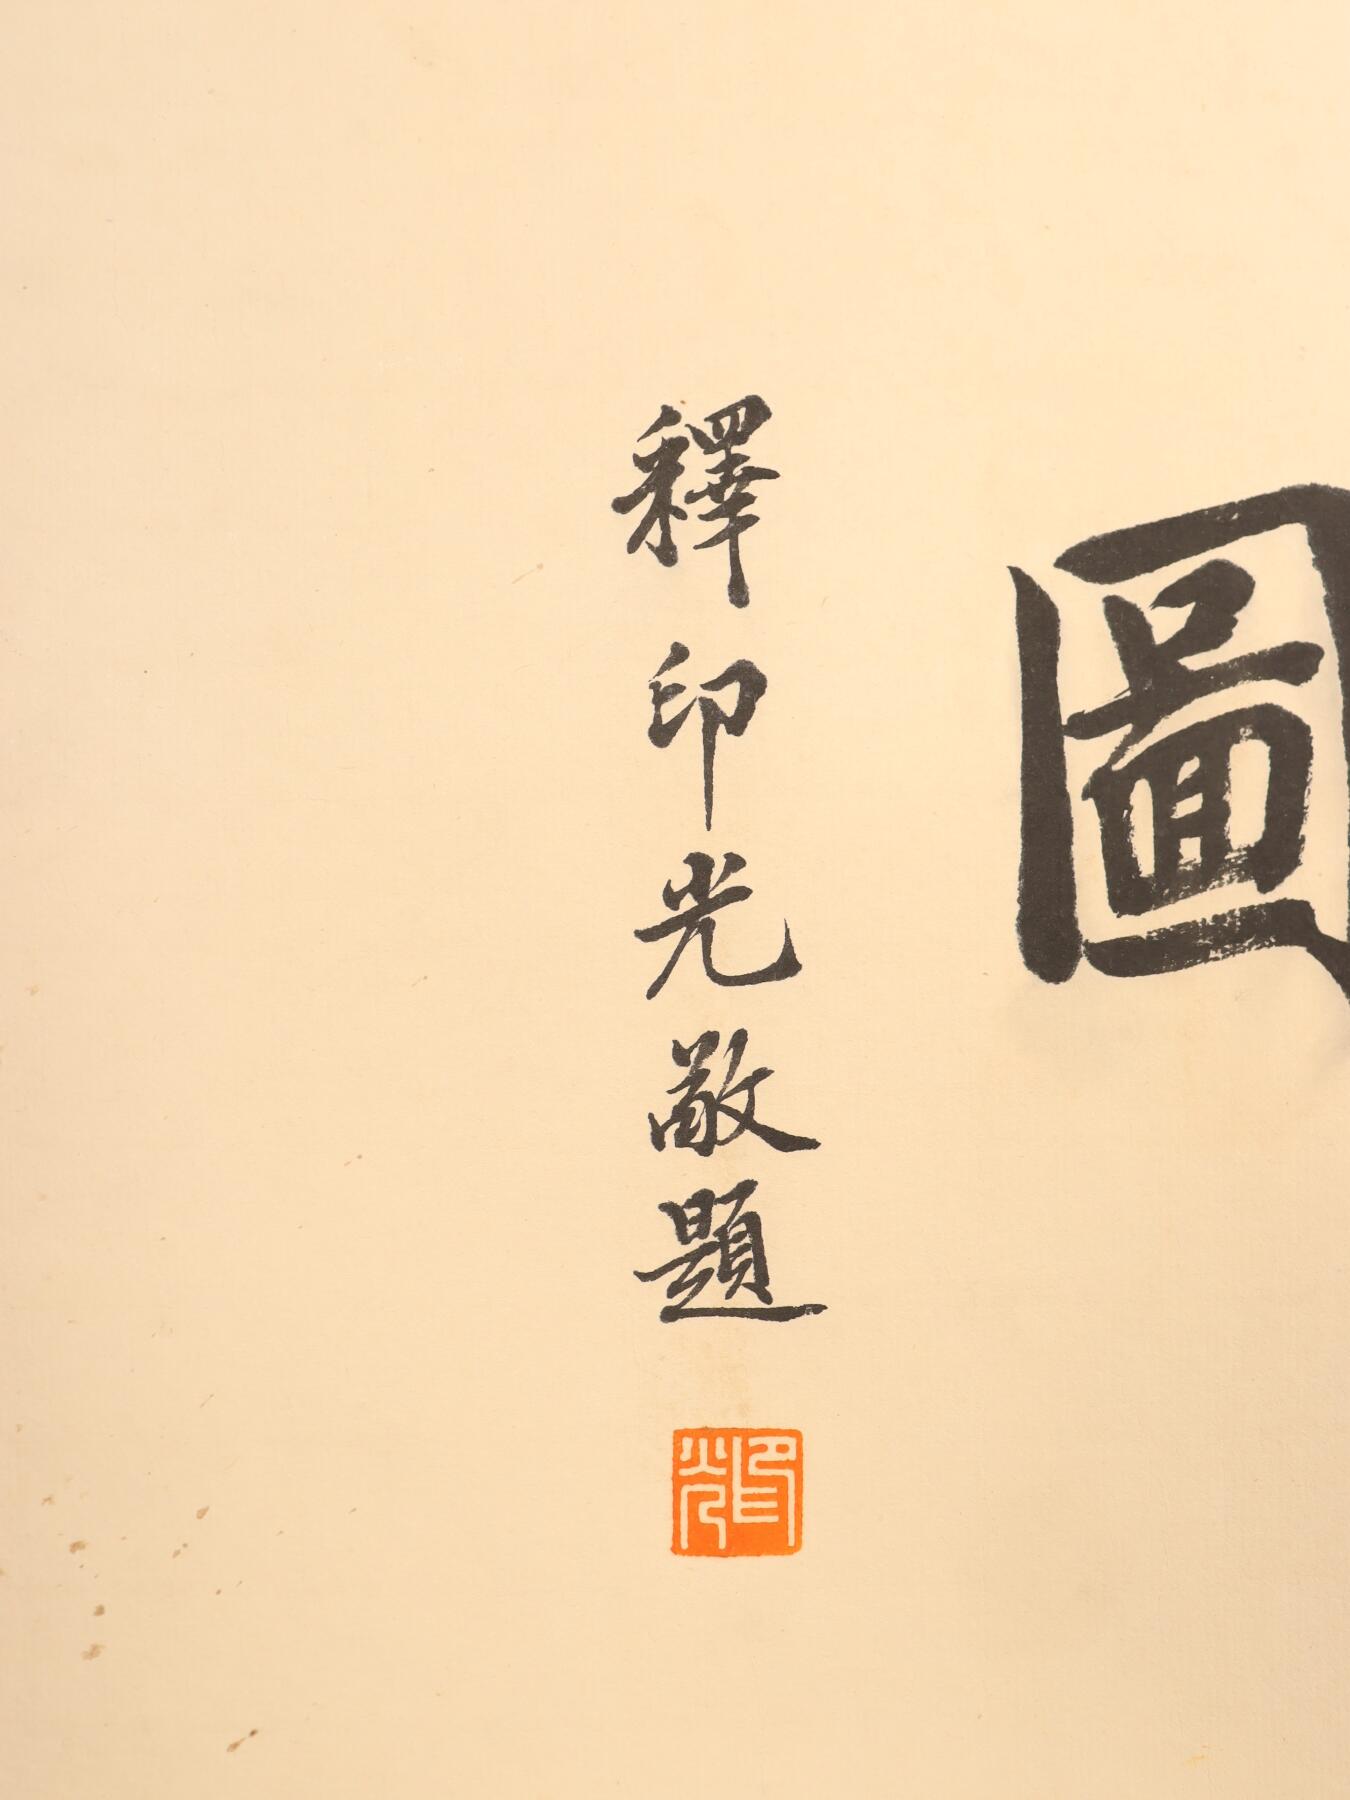 圖
釋印光敬題
印光